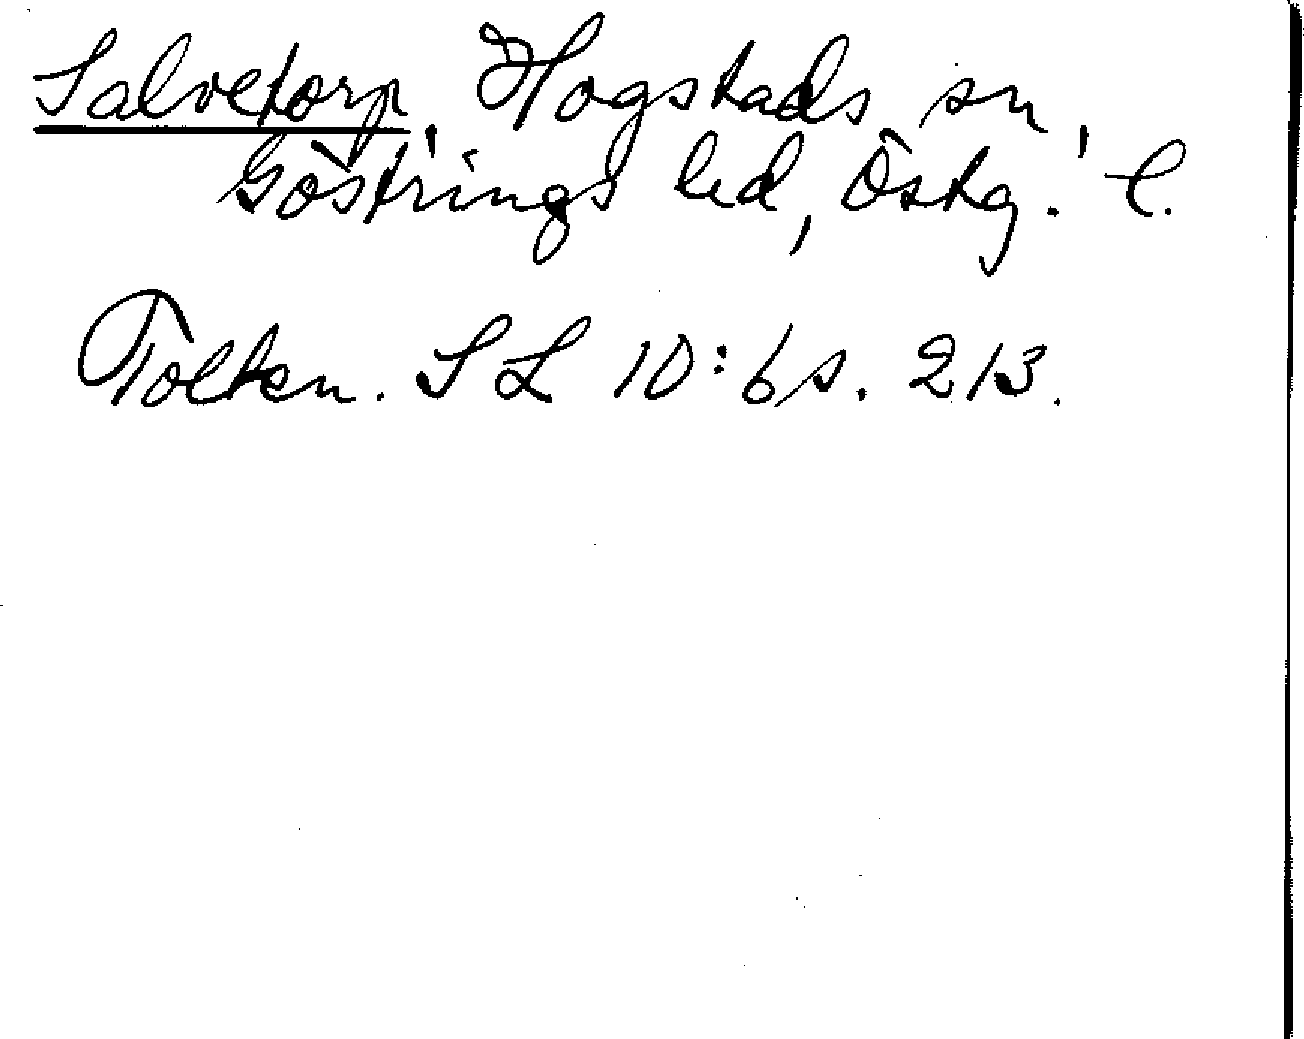 Salvetorp, Hogstads sn,
Göstrings hd, Östg. l.
Tolken. SL 10:6 s. 213.